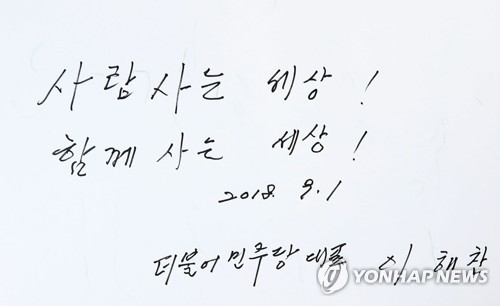 사람 사는 세상!
함께 사는 세상!
2018. 9. 1
더불어민주당 대표 이 해 찬
YONHAP NEWS